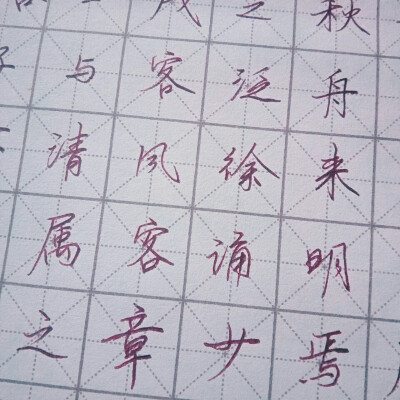 之秋
与客泛舟
清风徐来
属客诵明
之章少焉